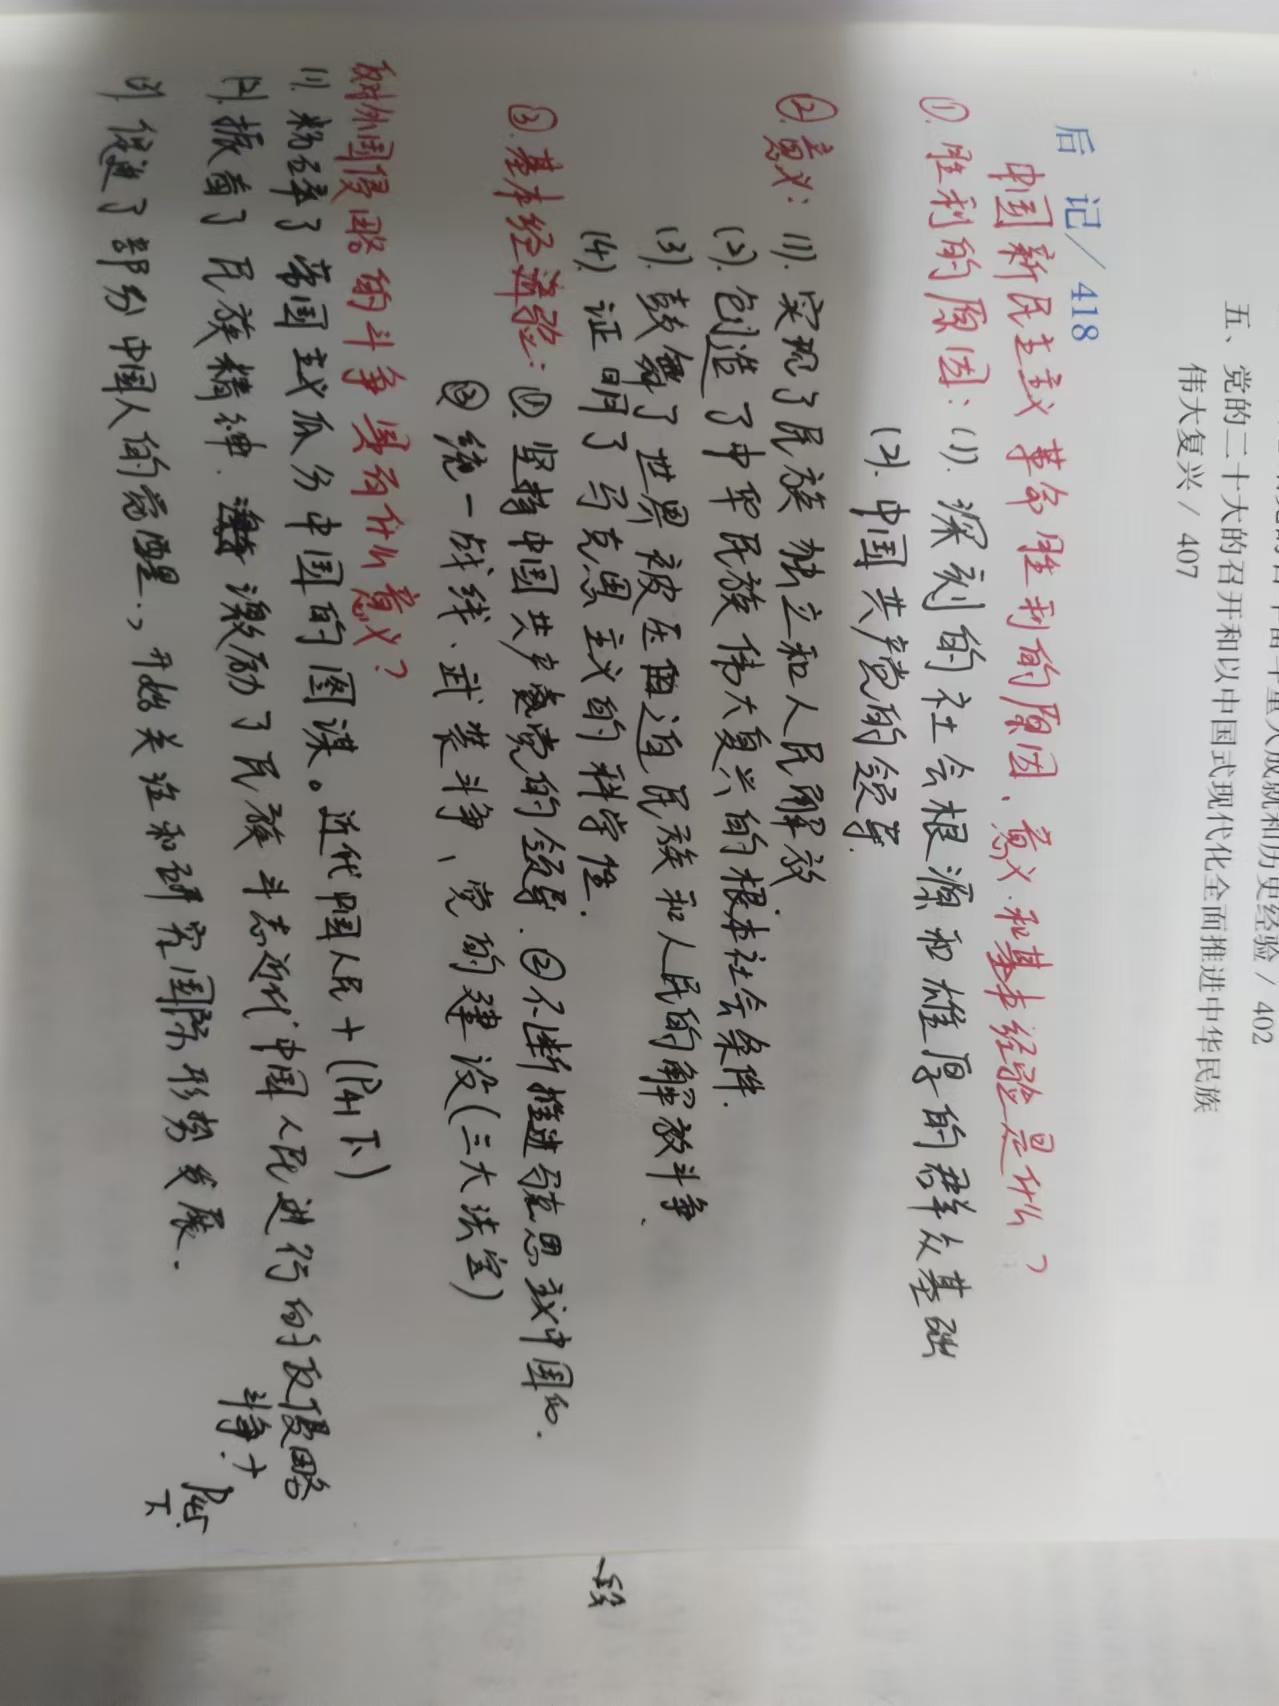 五、党的二十大的召开和以中国式现代化全面推进中华民族
伟大复兴 / 407
后 记 / 418
中国新民主主义革命胜利的原因、意义、和基本经验是什么?
①. 胜利的原因: (1). 深刻的社会根源和雄厚的群众基础
(2). 中国共产党的领导.
②. 意义: (1). 实现了民族独立和人民解放
(2). 创造了中华民族伟大复兴的根本社会条件.
(3). 鼓舞了世界被压迫民族和人民的解放斗争、
(4). 证明了马克思主义的科学性.
③. 基本经验: ①. 坚持中国共产党的领导. ②不断推进马克思主义中国化.
③ 统一战线、武装斗争、党的建设(三大法宝)
反对外国侵略的斗争具有什么意义?
(1). 粉碎了帝国主义瓜分中国的图谋。近代中国人民 + (P41 下)
(2). 振奋了民族精神. 激励了民族斗志近代中国人民进行的反侵略
斗争. + P45.
下
一段
(3). 促进了部份中国人的觉醒., 开始关注和研究国际形势发展.